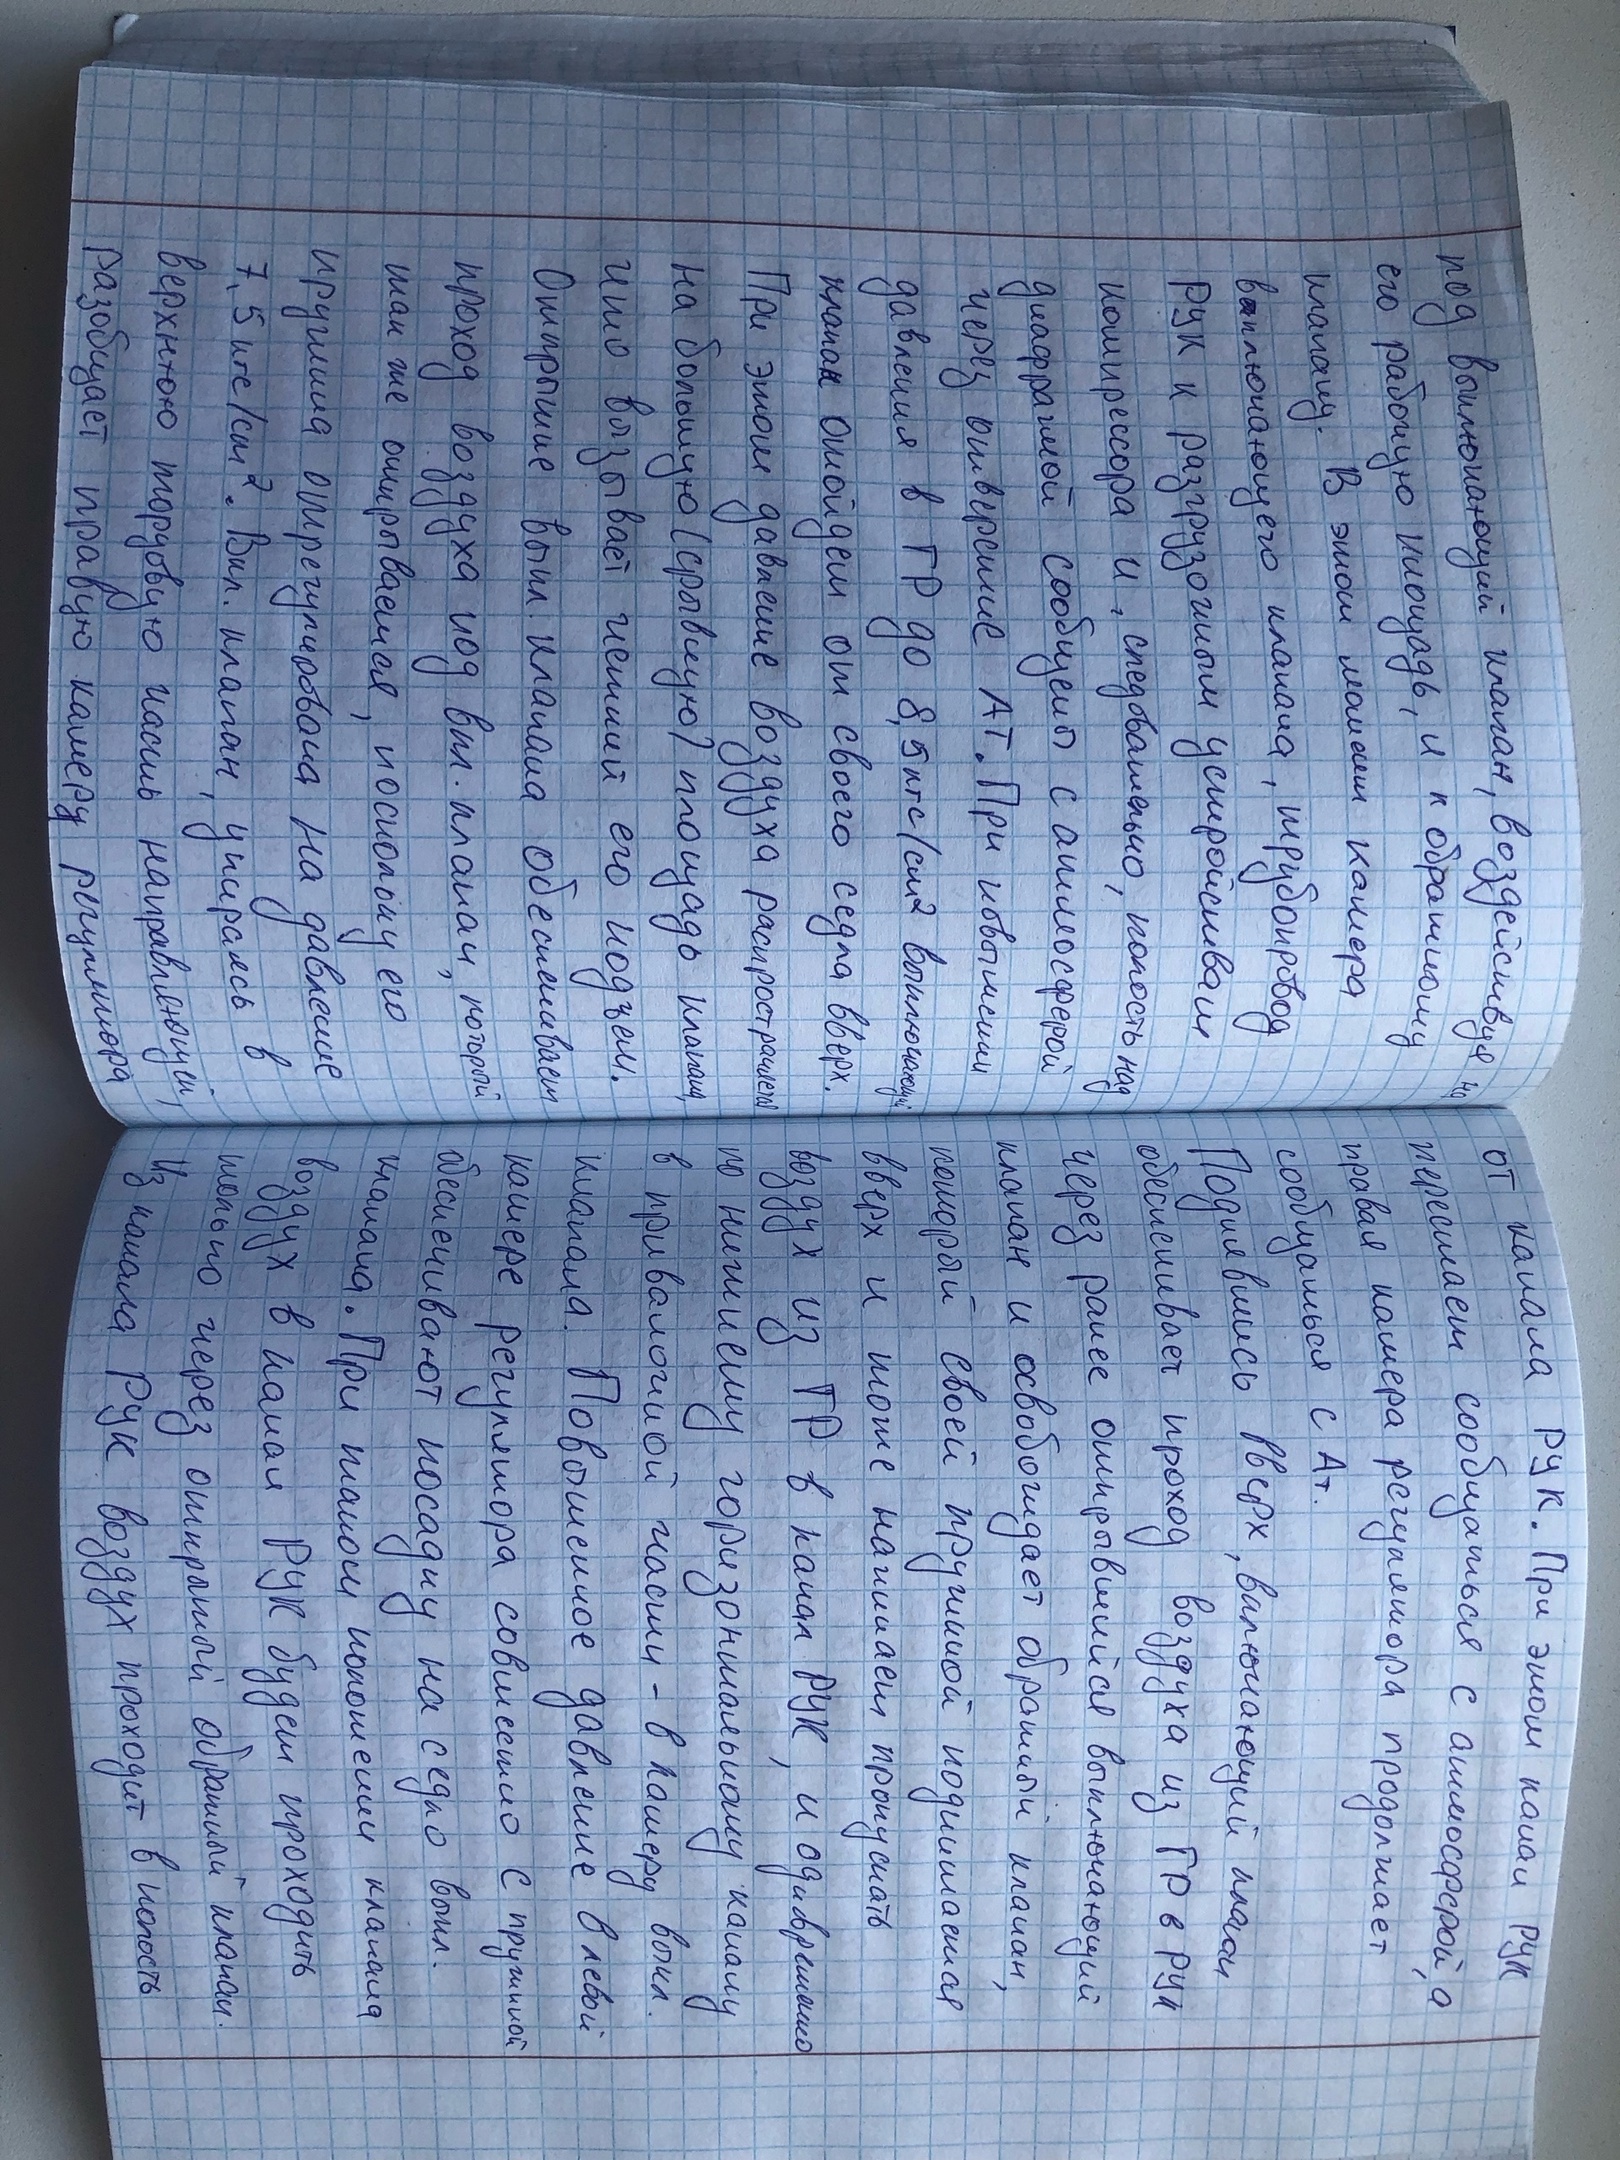 под выключающий клапан, воздействуя на
его рабочую площадь, и к обратному
клапану. В этом момент камера
выключающего клапана, трубопровод
РУК к разгрузочным устройствам
компрессора и, следовательно, полость над
диафрагмой сообщены с атмосферой
через отверстие АТ. При повышении
давления в ГР до 8,5 кгс/см² выключающий
клапан отойдет от своего седла вверх.
При этом давление воздуха распространяется
на большую (срывную) площадь клапана,
что вызывает четкий его подъем.
Открытие выкл. клапана обеспечивает
проход воздуха под вкл. клапан, который
так же открывается, поскольку его
пружина отрегулирована на давление
7,5 кгс/см². Вкл. клапан, упираясь в
верхнюю торцовую часть направляющей,
разобщает правую камеру регулятора
от канала РУК. При этом канал РУК
перестает сообщаться с атмосферой, а
правая камера регулятора продолжает
сообщаться с Ат.
Поднявшись вверх, включающий клапан
обеспечивает проход воздуха из ГР в РУК
через ранее открывшийся выключающий
клапан и освобождает обратный клапан,
который своей пружиной поднимается
вверх и тоже начинает пропускать
воздух из ГР в канал РУК, и одновременно
по нижнему горизонтальному каналу
в привалочной части - в камеру выкл.
клапана. Повышенное давление в левой
камере регулятора совместно с пружиной
обеспечивают посадку на седло выкл.
клапана. При таком положении клапана
воздух в канал РУК будет проходить
только через открытый обратный клапан.
Из канала РУК воздух проходит в полость